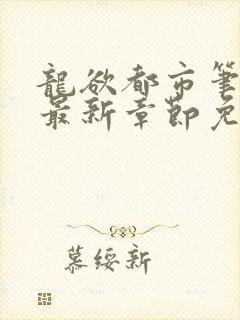 龍欲都市筆
最新章節免
慕綏新